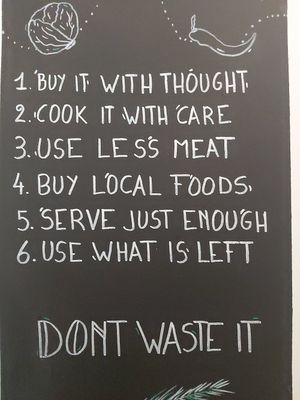 1. BUY IT WITH THOUGHT
2. COOK IT WITH CARE
3. USE LESS MEAT
4. BUY LOCAL FOODS
5. SERVE JUST ENOUGH
6. USE WHAT IS LEFT
DONT WASTE IT